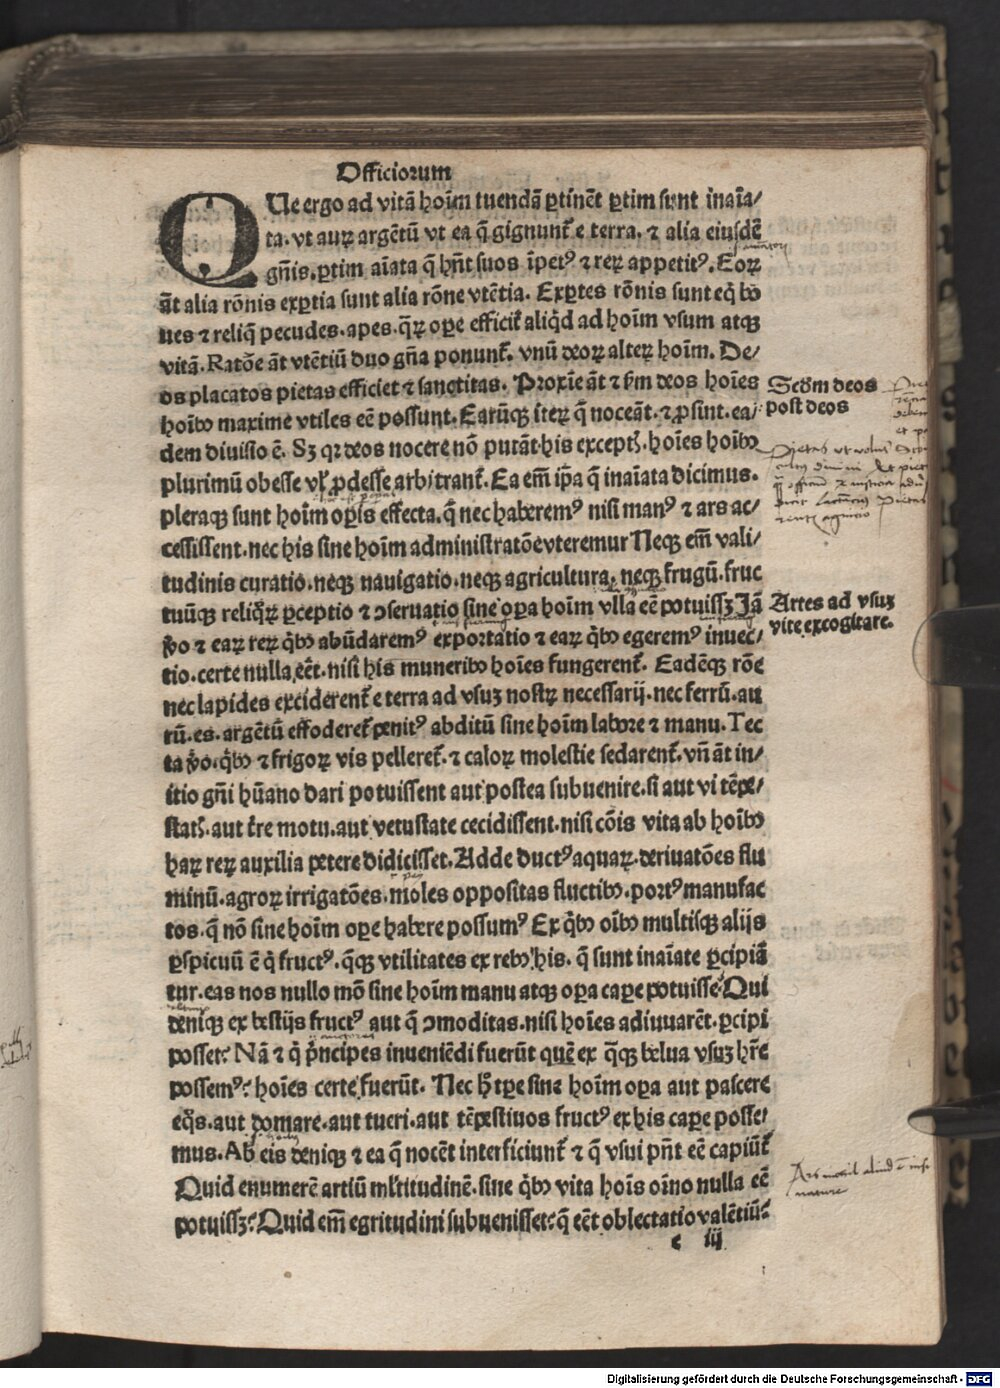 Officiorum
QUe ergo ad vitā hoīm tuendā ꝑtinēt ꝑtim sunt inaīa/
ta. vt auꝝ argētū vt ea q̄ gignunt᷑ e terra. ⁊ alia eiusdē
gn̄is. ꝑtim aīata q̄ hn̄t suos īpetꝰ ⁊ reꝝ appetitꝰ. Eoꝝ
āt alia rōnis exꝑtia sunt alia rōne vtētia. Exꝑtes rōnis sunt eq̇ bo
ues ⁊ reliq̄ pecudes. apes. q̄ꝝ oꝑe efficit᷑ aliq̇d ad hoīm vsum atqꝫ
vitā. Ratōe āt vtētiū duo gn̄a ponunt᷑. vnū deoꝝ alteꝝ hoīm. De/
os placatos pietas efficiet ⁊ sanctitas. Proxīe āt ⁊ ẜm deos hoīes
hoībꝰ maxime vtiles eē possunt. Earūqꝫ iteꝝ q̄ noceāt. ⁊ ꝓsint. ea/
dem diuisio ē. Sꝫ qꝛ deos nocere nō putāt. his exceptꝭ. hoīes hoībꝰ
plurimū obesse vl̓ ꝓdesse arbitrant᷑. Ea em̄ ip̄a q̄ inaīata dicimus.
pleraqꝫ sunt hoīm oꝑis effecta. q̄ nec haberemꝰ nisi manꝰ ⁊ ars ac/
cessissent. nec his sine hoīm administratōe vteremur Neqꝫ em̄ vali/
tudinis curatio. neqꝫ nauigatio. neqꝫ agricultura, neqꝫ frugū. fruc
tuūqꝫ reliq̄ꝝ ꝑceptio ⁊ ꝯseruatio sine oꝑa hoīm vlla eē potuissꝫ Jā
ꝟo ⁊ eaꝝ reꝝ q̇bꝰ abūdaremꝰ exportatio ⁊ eaꝝ q̇bꝰ egeremꝰ inuec/
tio. certe nulla eēt. nisi his muneribꝰ hoīes fungerent᷑. Eadēqꝫ rōe
nec lapides exciderent᷑ e terra ad vsuꝫ nostꝝ necessarij. nec ferrū. au
rū. es. argētū effoderet᷑ penitꝰ abditū sine hoīm labore ⁊ manu. Tec
ta ꝟo. q̇bꝰ ⁊ frigoꝝ vis pelleret᷑. ⁊ caloꝝ molestie sedarent᷑. vn̄ āt in/
itio gn̄i hūano dari potuissent aut postea subuenire. si aut vi tēpe/
statꝭ. aut t̄re motu. aut vetustate cecidissent. nisi cōis vita ab hoībꝰ
haꝝ reꝝ auxilia petere didicisset. Adde ductꝰ aquaꝝ. deriuatōes flu
minū. agroꝝ irrigatōes. moles oppositas fluctibꝰ. portꝰ manufac
tos. q̄ nō sine hoīm oꝑe habere possumꝰ Ex q̇bꝰ oībꝰ multisqꝫ alijs
ꝑspicuū ē q̇ fructꝰ. q̄qꝫ vtilitates ex rebꝰ his. q̄ sunt inaīate ꝑcipiā
tur. eas nos nullo mō sine hoīm manu atqꝫ oꝑa capere potuisse. Qui
deniqꝫ ex bestijs fructꝰ aut q̄ ꝯmoditas. nisi hoīes adiuuarēt. ꝑcipi
posset? Nā ⁊ q̇ pͥncipes inueniēdi fuerūt quē ex q̄qꝫ belua vsuꝫ hr̄e
possemꝰ? hoīes certe fuerūt. Nec hͦ tꝑe sine hoīm oꝑa aut pascere
eqͦs. aut domare. aut tueri. aut tēpestiuos fructꝰ ex his capere posse/
mus. Ab eis deniqꝫ ⁊ ea q̄ nocēt interficiunt᷑ ⁊ q̄ vsui pn̄t eē capiūt᷑
Quid enumerē artiū ml̓titudinē. sine q̇bꝰ vita hoīs oīno nulla eē
potuissꝫ? Quid em̄ egritudini subuenisset? q̄ eēt oblectatio valētiū?
c iij
Scd̓m deos
post deos
Artes ad vsuꝫ
vite excogitare.
Digitalisierung gefördert durch die Deutsche Forschungsgemeinschaft - DFG